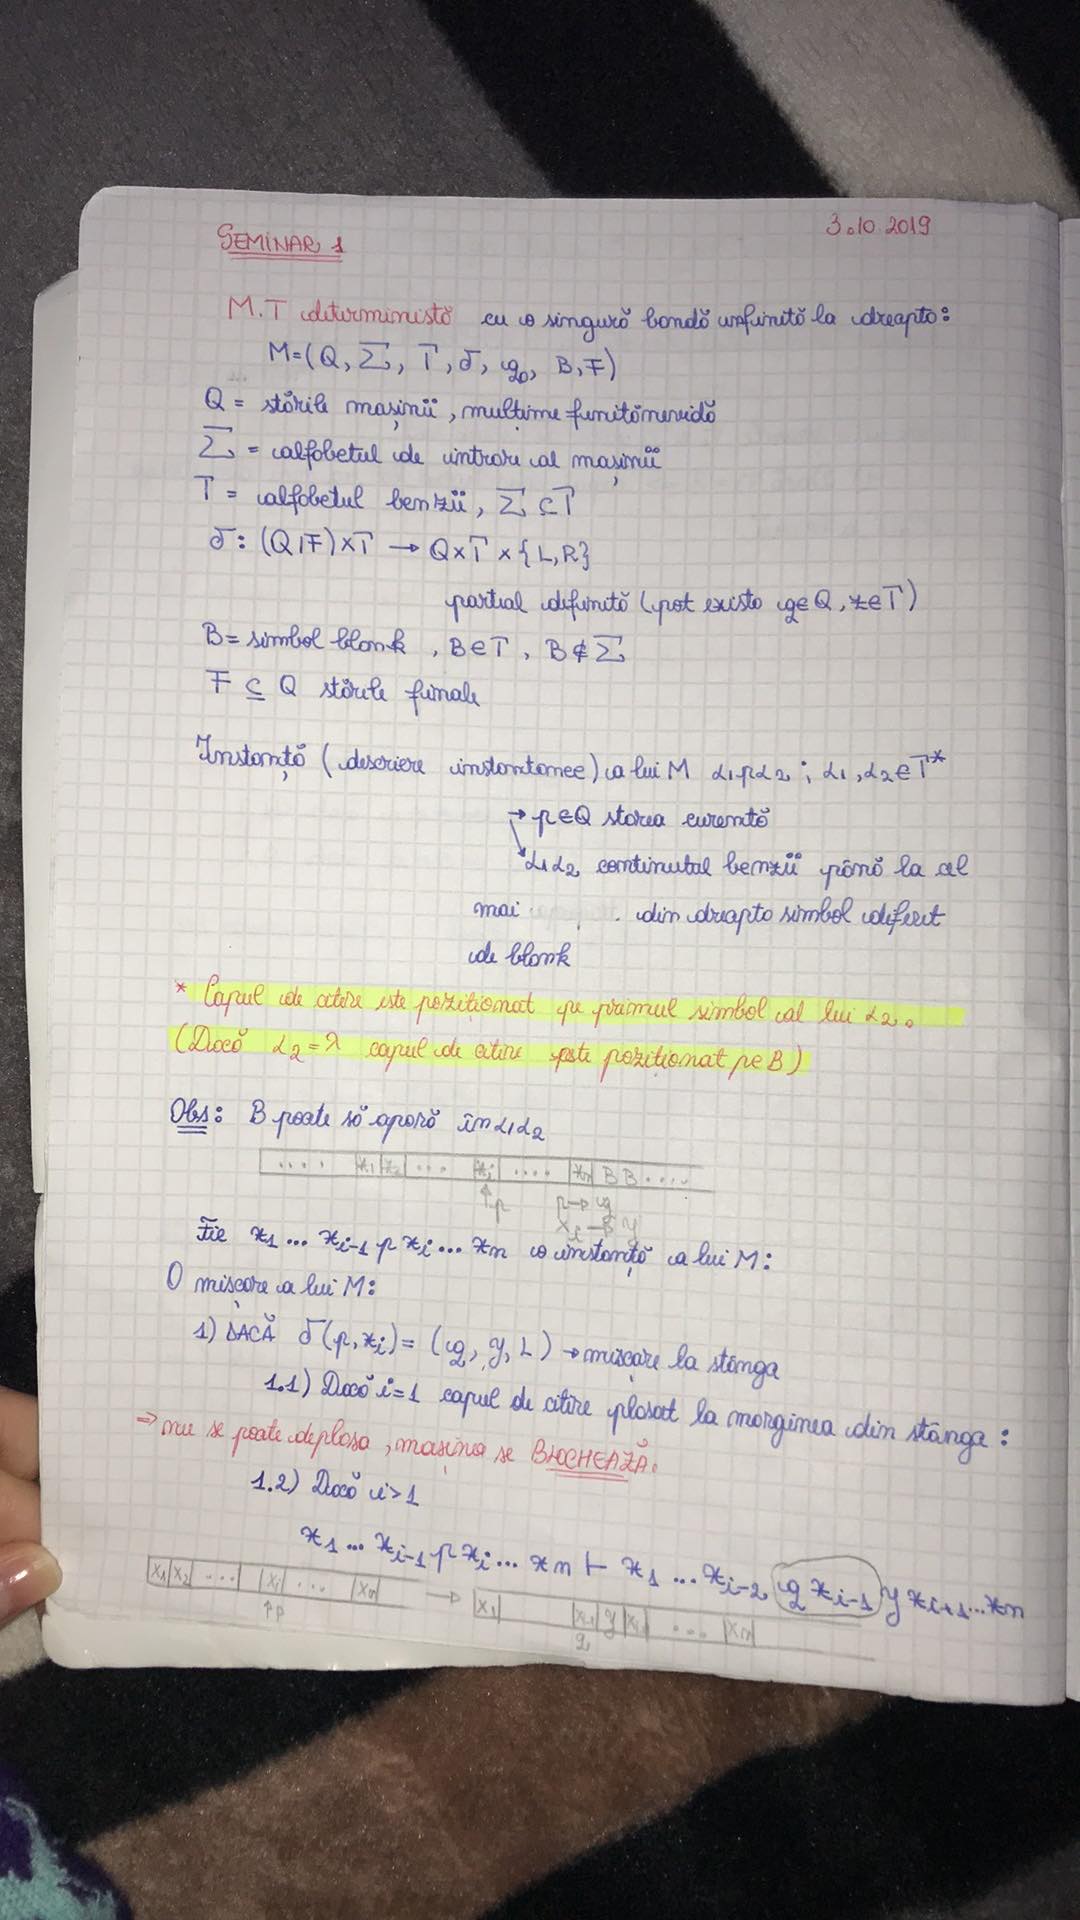 SEMINAR 1
3.10.2019
M.T deterministă cu o singură bandă infinită la dreapta:
M=(Q, Σ, Γ, δ, q₀, B, F)
Q = stările mașinii, mulțime finită nevidă
Σ = alfabetul de intrare al mașinii
Γ = alfabetul benzii, Σ ⊆ Γ
δ: (Q\F)×Γ → Q×Γ×{L,R}
parțial definită (pot exista q∈Q, x∈Γ)
B = simbol blank, B∈Γ, B∉Σ
F ⊆ Q stările finale
Instanță (descriere instantanee) a lui M α₁pα₂; α₁,α₂∈Γ*
→ p∈Q starea curentă
↘ α₁α₂ continutul benzii până la cel
mai din dreapta simbol diferit
de blank
* Capul de citire este poziționat pe primul simbol al lui α₂.
(Dacă α₂=λ capul de citire este poziționat pe B)
Obs: B poate să apară în α₁α₂
.... x₁ x₂ ... xᵢ .... xₙ B B ....
↑p p→q
xᵢ→y
Fie x₁...xᵢ₋₁ p xᵢ...xₙ o instanță a lui M:
O mișcare a lui M:
1) DACĂ δ(p,xᵢ)=(q, y, L) → mișcare la stânga
1.1) Dacă i=1 capul de citire plasat la marginea din stânga:
⇒ nu se poate deplasa, mașina se BLOCHEAZĂ.
1.2) Dacă i>1
x₁...xᵢ₋₁ p xᵢ...xₙ ⊢ x₁...xᵢ₋₂ q xᵢ₋₁ y xᵢ₊₁...xₙ
x₁ x₂ ... xᵢ ... xₙ → x₁ xᵢ₋₁ y ... xₙ
↑p q